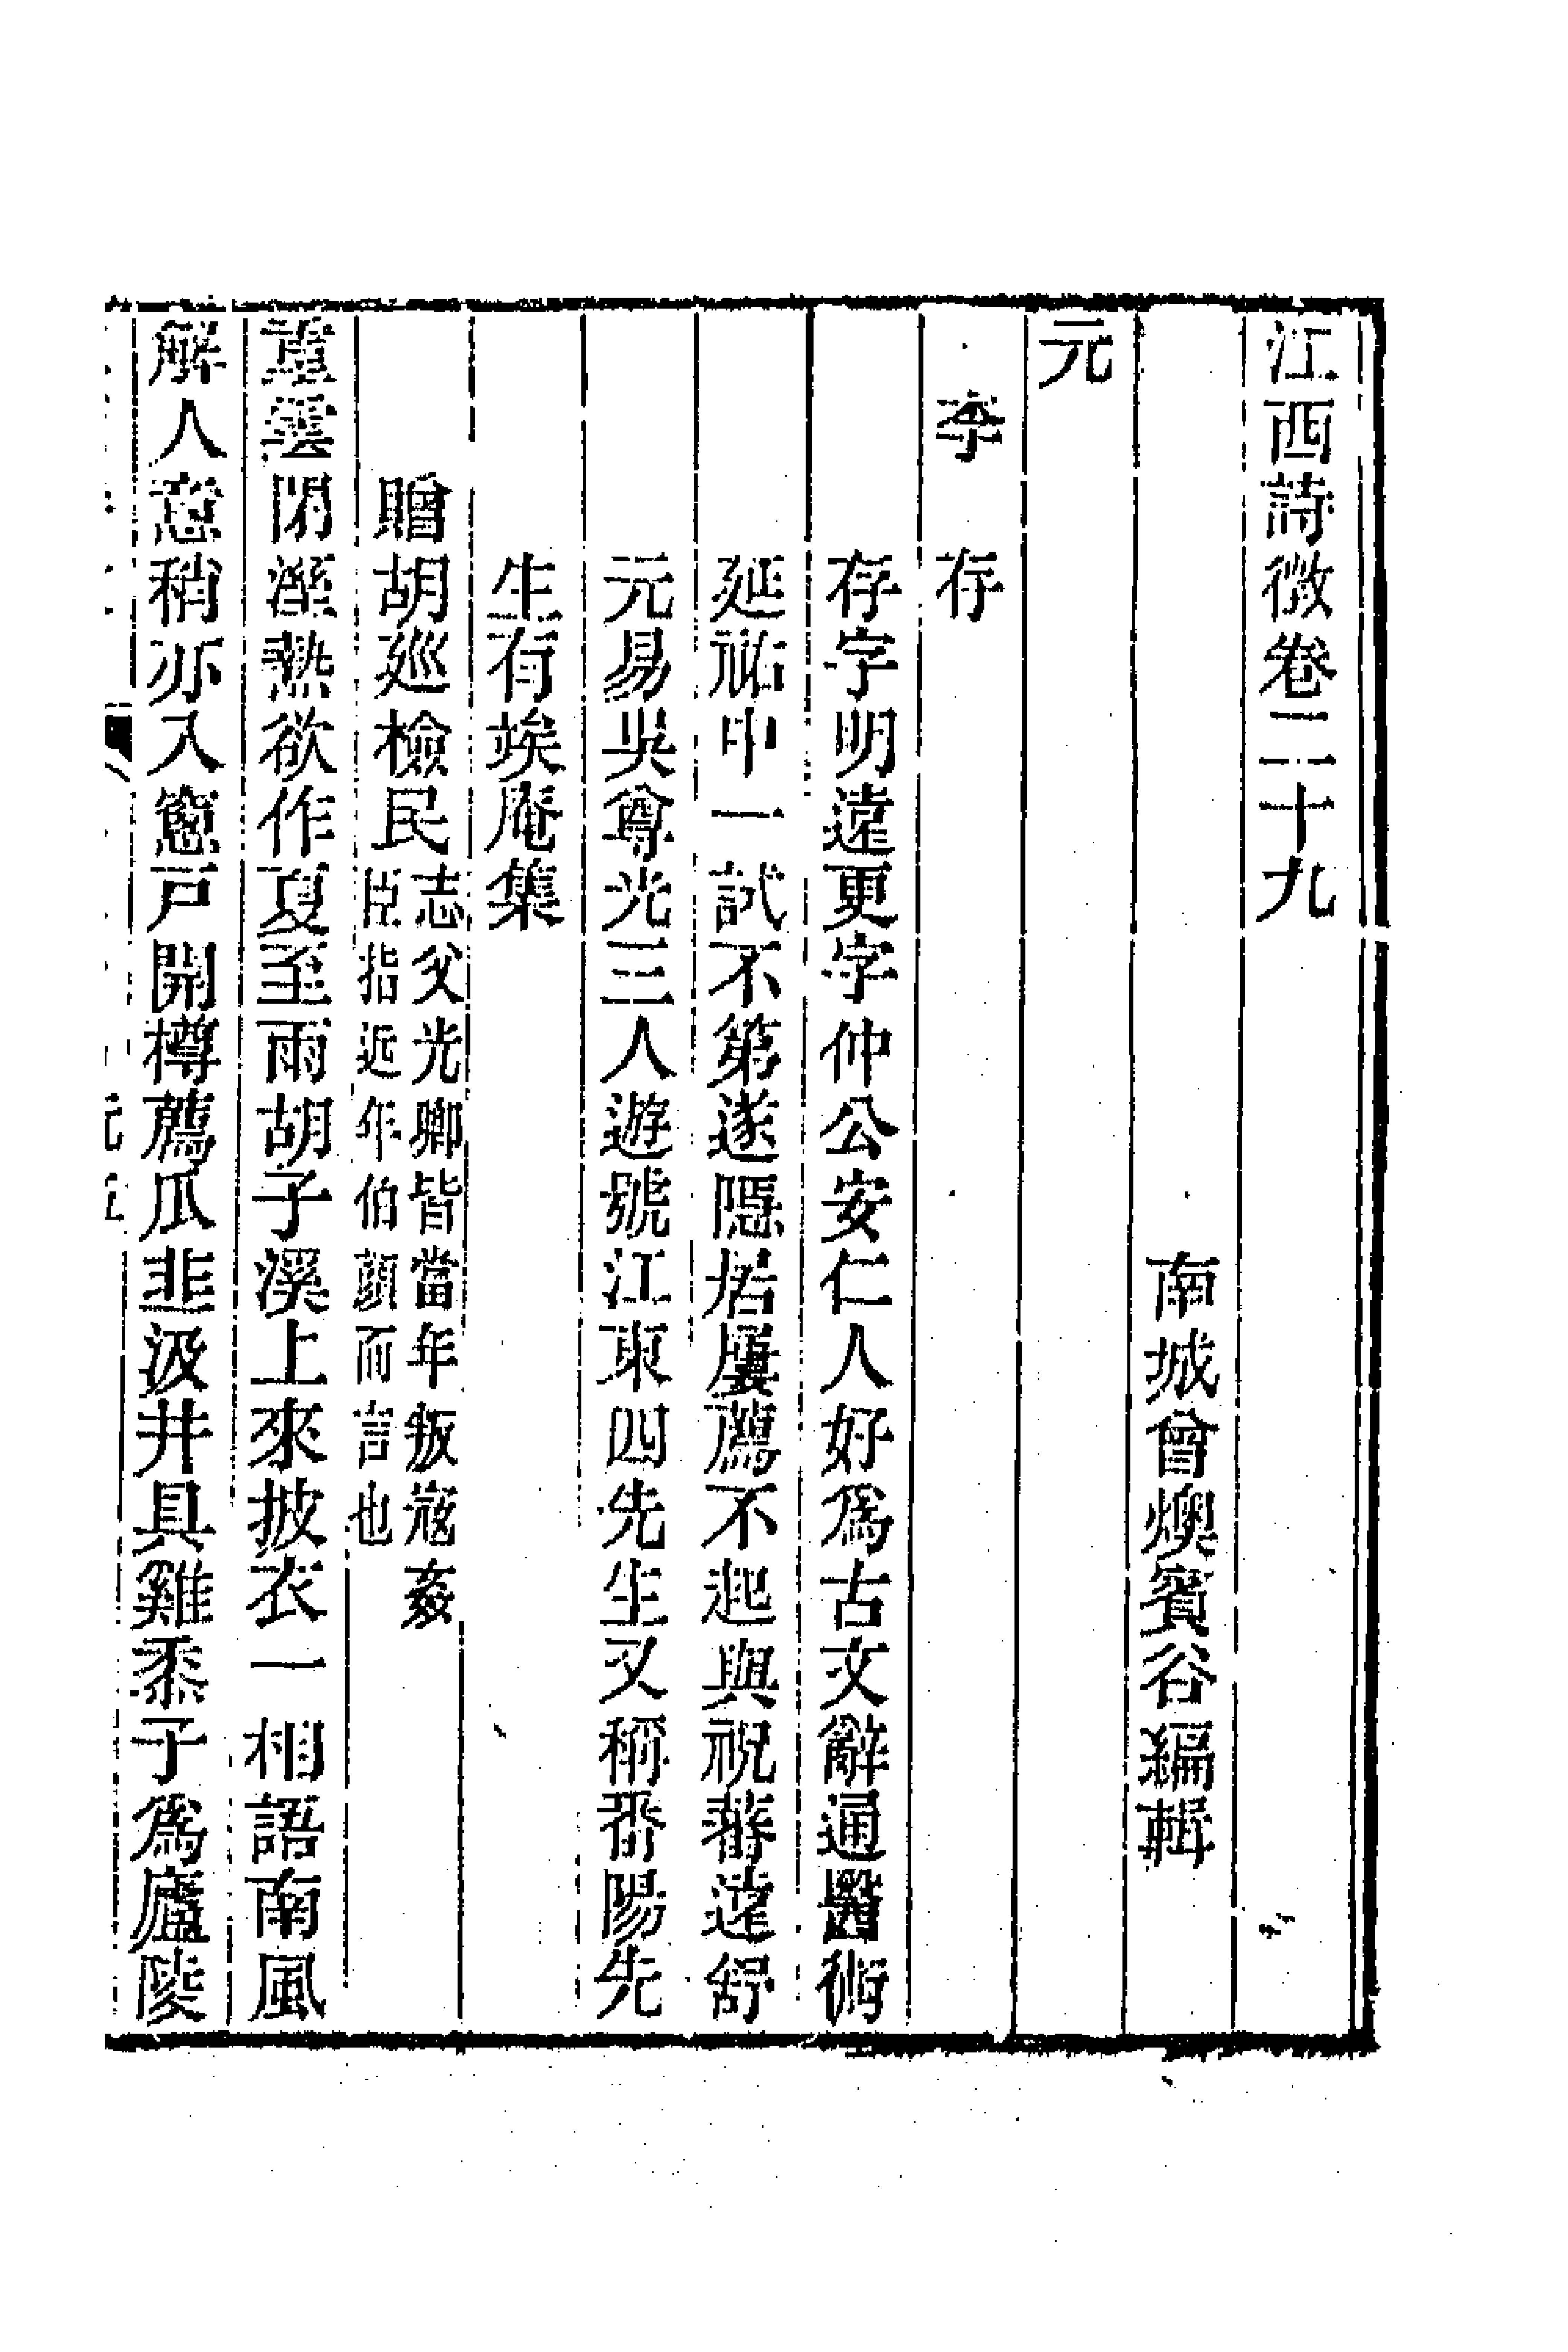 江西詩徵卷二十九
南城曾燠賓谷編輯
元
李存
存字明遠更字仲公安仁人好爲古文辭通醫術
延祐中一試不第遂隱居屢薦不起與祝蕃遠舒
元易吳尊光三人遊號江東四先生又稱番陽先
生有俟庵集
贈胡廵檢民志父光卿皆當年叛寇姦
臣指近年伯顏而言也
重雲閉溼熱欲作夏至雨胡子溪上來披衣一相語南風
解人意稍亦入窻戸開樽薦瓜韭汲井具雞黍子爲廬陵